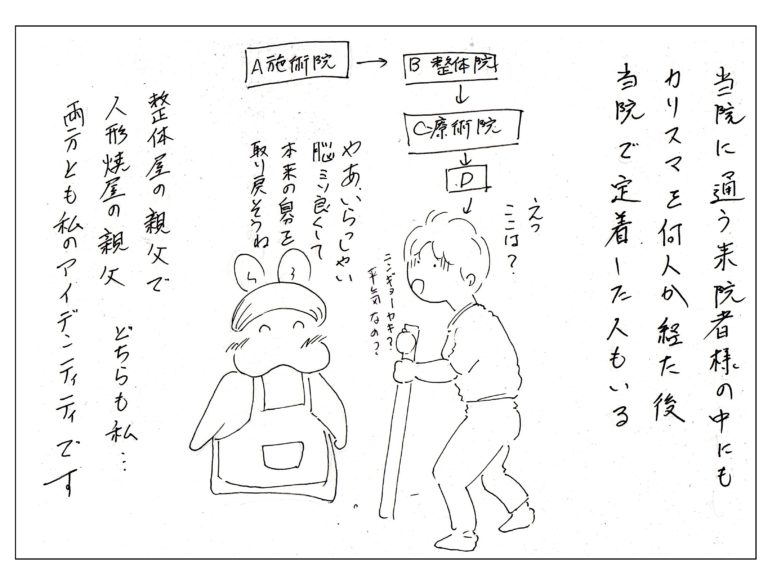 当院に通う来院者様の中にも
カリスマを何人か経た後
当院で定着した人もいる
A 施術院
B 整体院
C 療術院
D
えっ
ここは？
ニンギョーヤキ？
平気なの？
やあ、いらっしゃい
脳ミソ良くして
本来の自分を
取り戻そうね
整体屋の親父で
人形焼屋の親父　どちらも私…
両方とも私のアイデンティティです